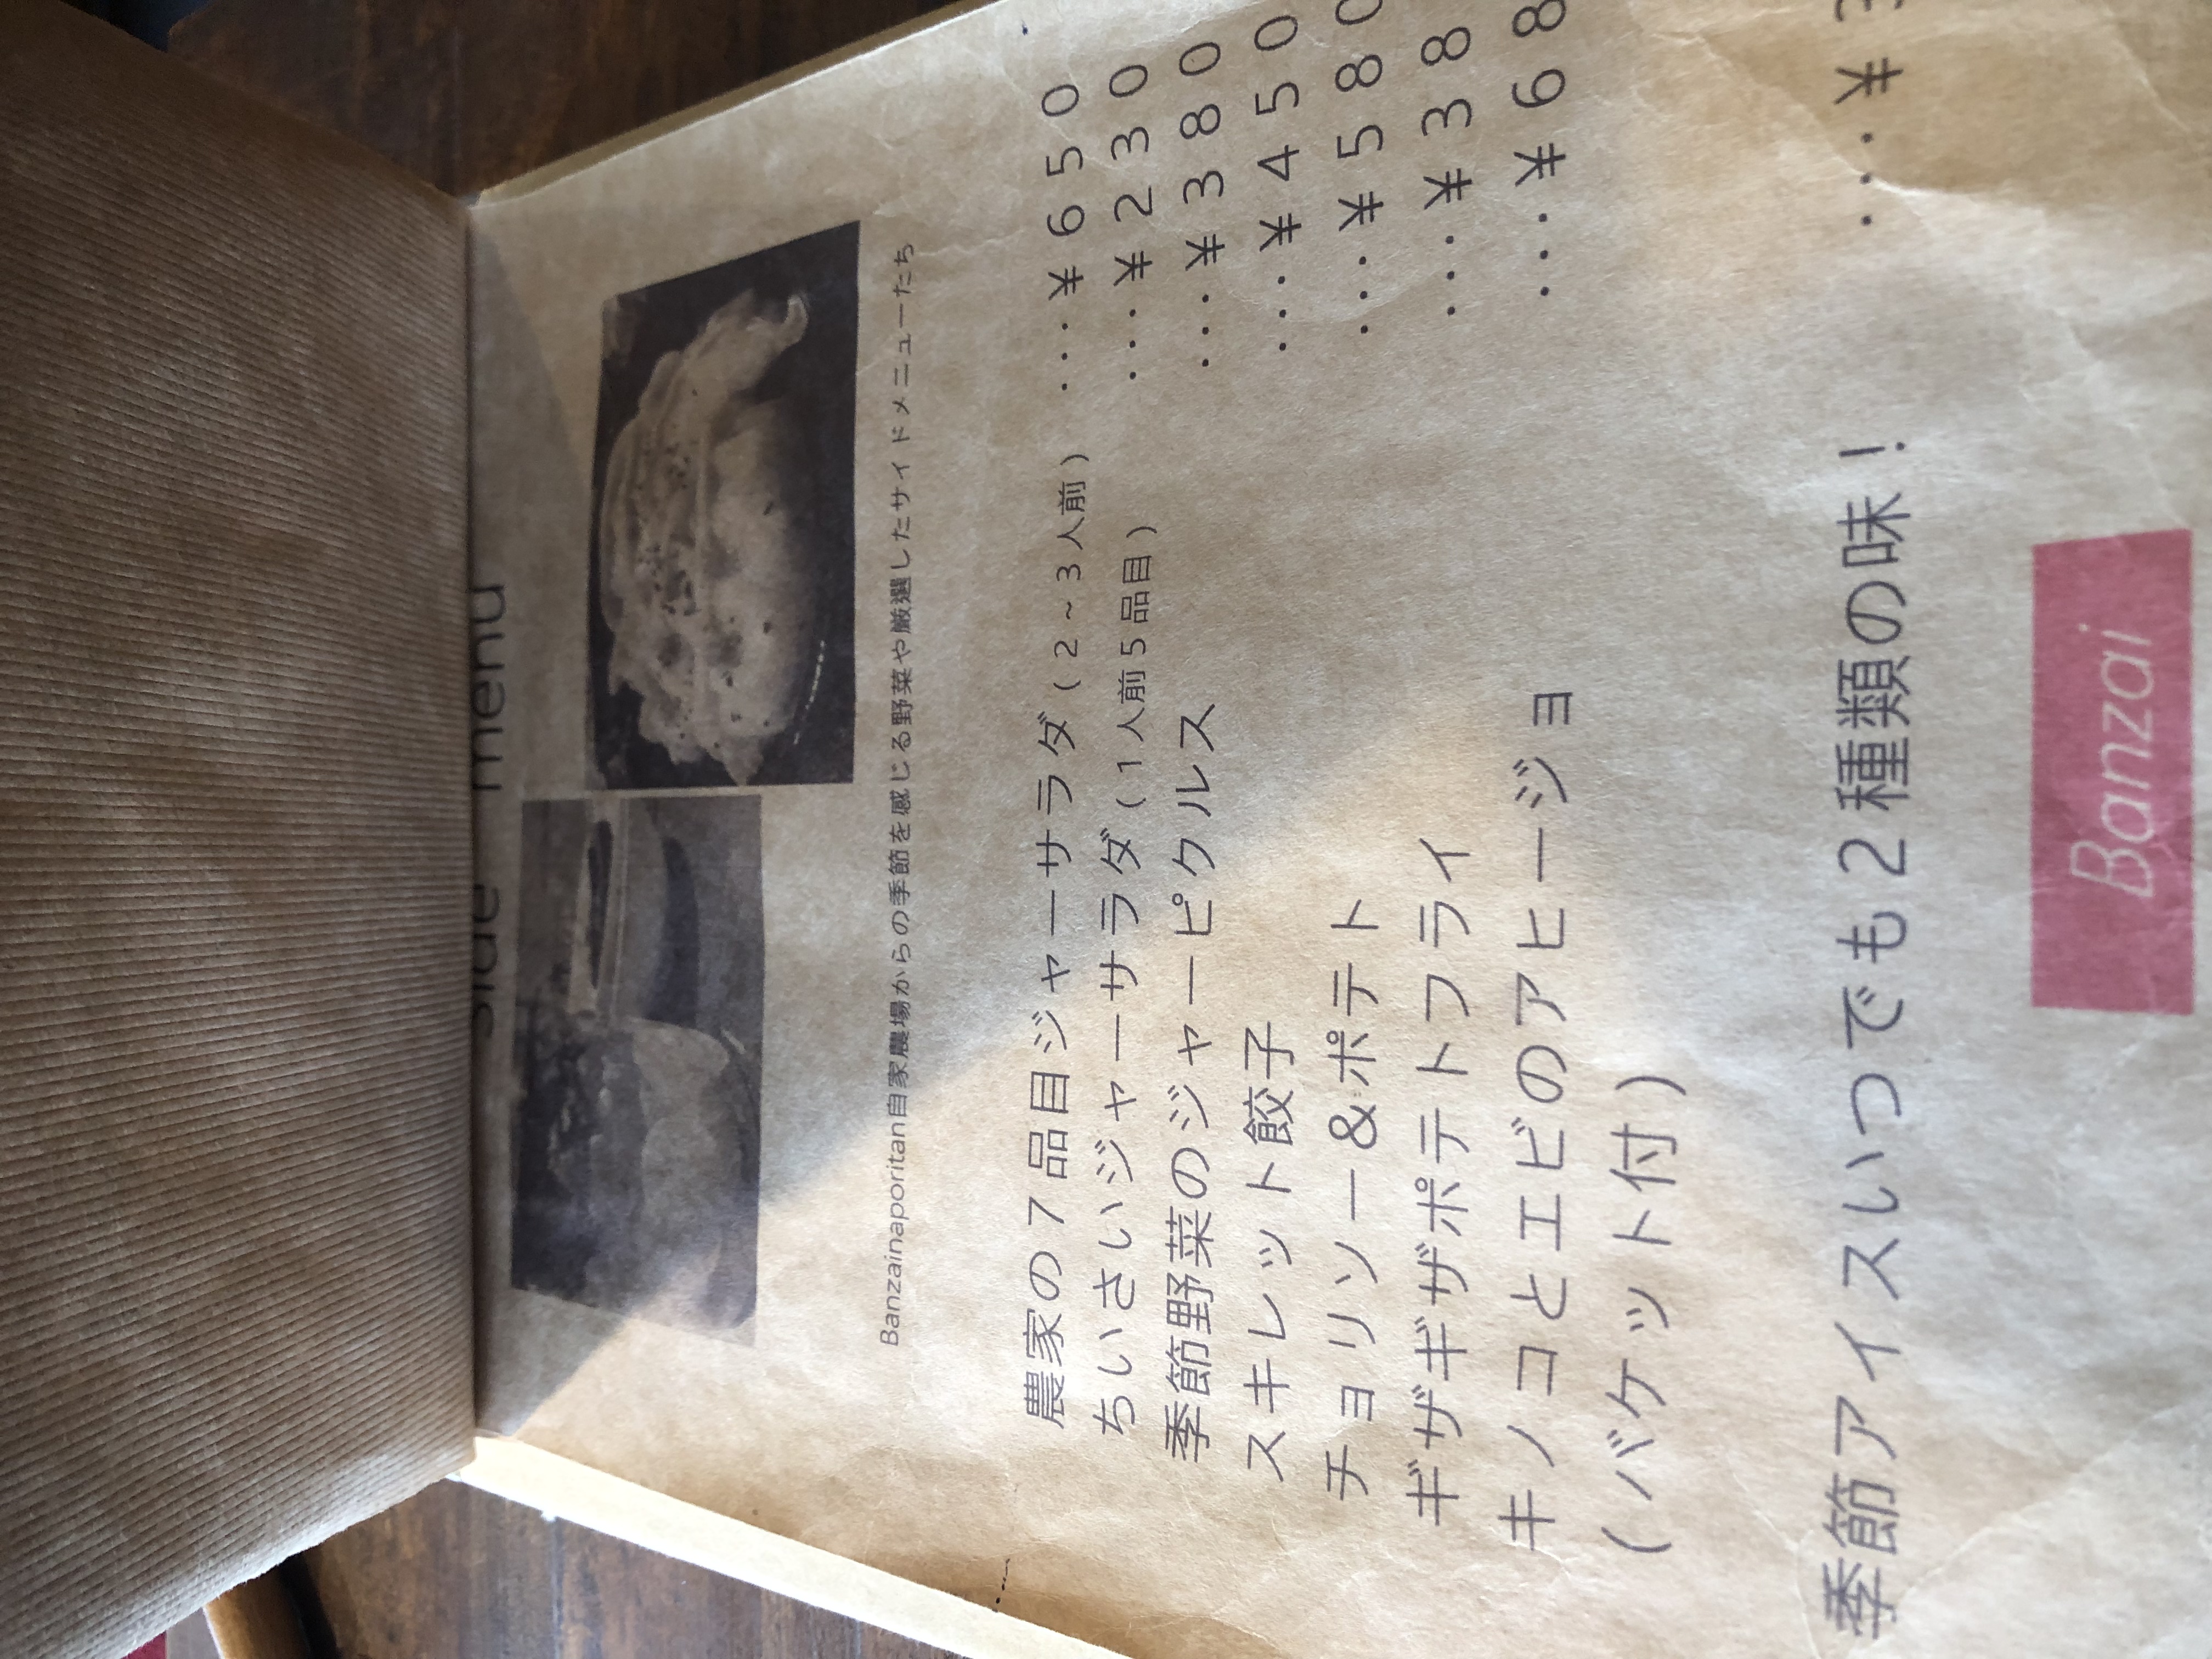 side menu
Banzainaporitan自家農場からの季節を感じる野菜や厳選したサイドメニューたち
農家の7品目ジャーサラダ(2~3人前) ...¥650
ちいさいジャーサラダ(1人前5品目) ...¥230
季節野菜のジャーピクルス ...¥380
スキレット餃子 ...¥450
チョリソー&ポテト ...¥580
ギザギザポテトフライ ...¥38
キノコとエビのアヒージョ ...¥68
(バケット付)
季節アイスいつでも2種類の味! ...¥3
Banzai